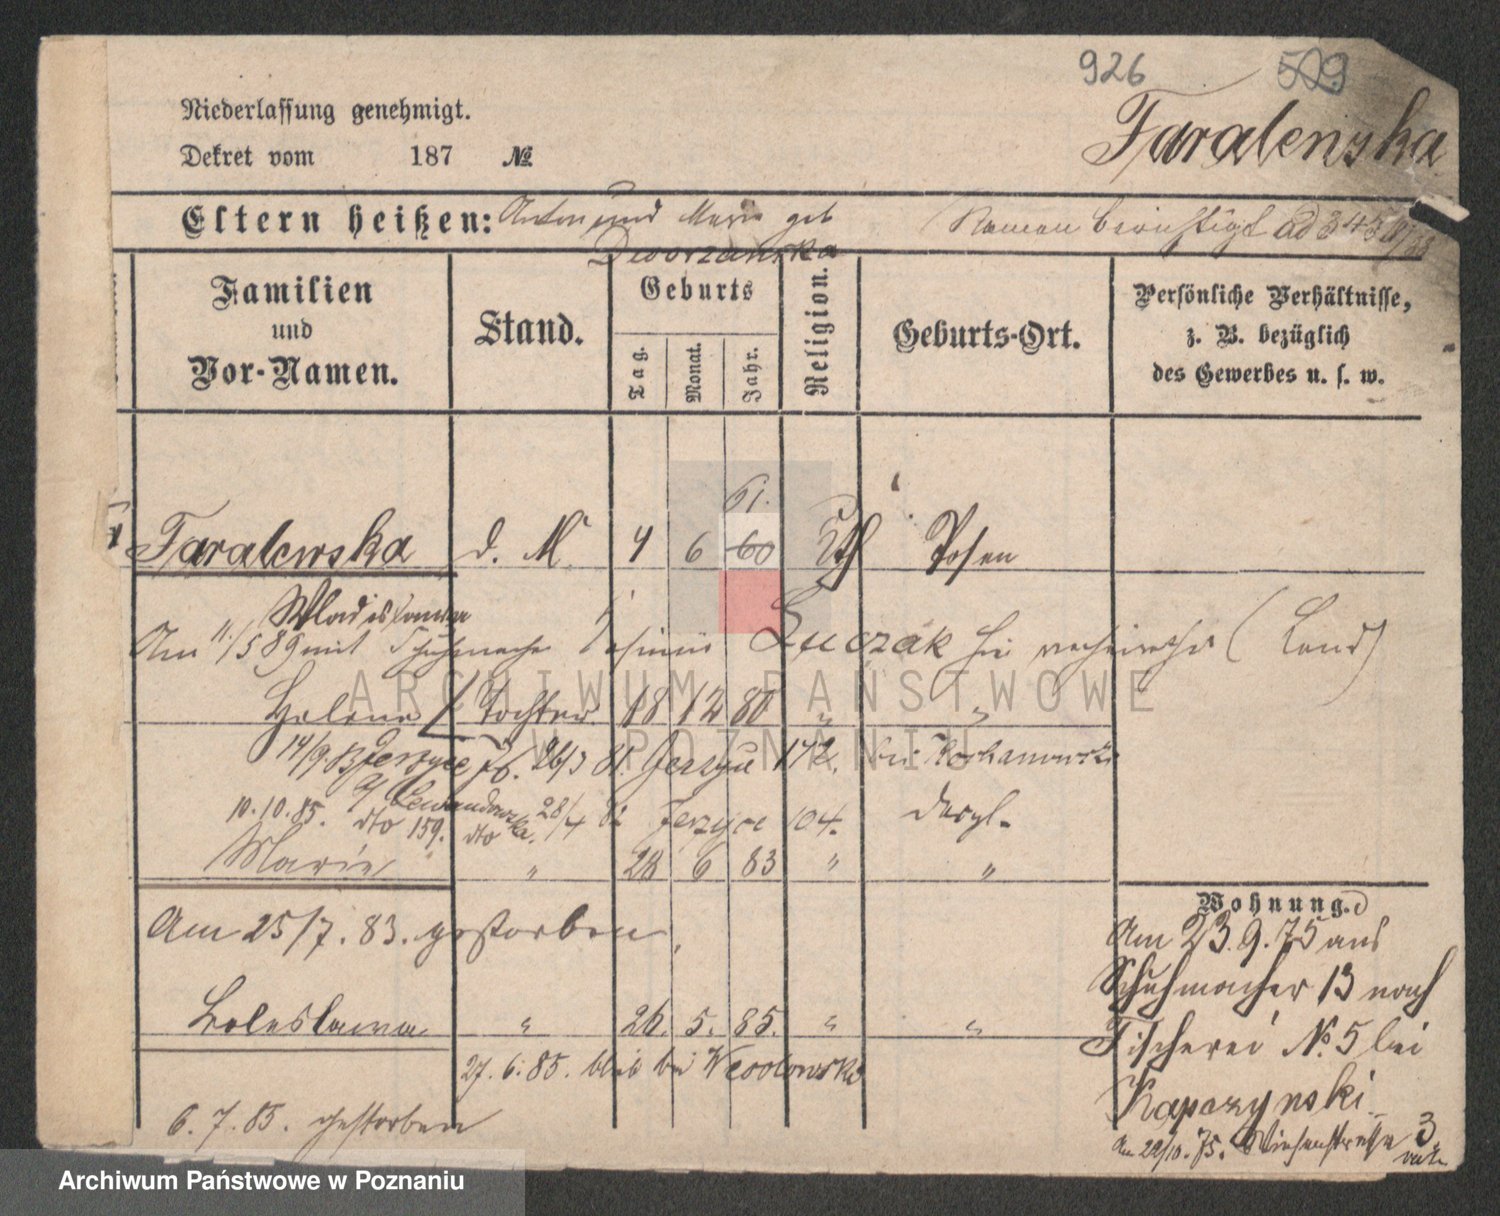 926 509
Niederlassung genehmigt.
Taralenska
Dekret vom 187 №
Eltern heißen: Anton und Marie geb Namen berichtigt ad 343
Dworzanska
Familien und Vor-Namen.
Stand.
Geburts
Tag. Monat. Jahr.
Religion.
Geburts-Ort.
Persönliche Verhältnisse,
z. B. bezüglich
des Gewerbes u. s. w.
61.
Taralewska d. M. 4 6 60 kth Posen
Wladislawa
Am 11/5 89 mit Schuhmacher Luczak hie (Land)
Helene Tochter 18 12 80 " "
14/9. Jerzyce 26/3 81. Jerzyce 172. bei
10.10.85. Lewandowska 28/4 82 Jerzyce 104. desgl.
dto 159. dto
Marie " 28 6 83 " "
Am 25/7. 83. gestorben
Boleslawa " 26. 5. 85. " "
27. 6. 85. bei
6. 7. 85. gestorben
Wohnung.
Am 23. 9. 75 aus
Schuhmacher 13 nach
Fischerei No. 5 bei
Kapczynski.
Am 22/10. 75. Wiesenstrasse 3
Archiwum Państwowe w Poznaniu
ARCHIWUM PAŃSTWOWE
W POZNANIU